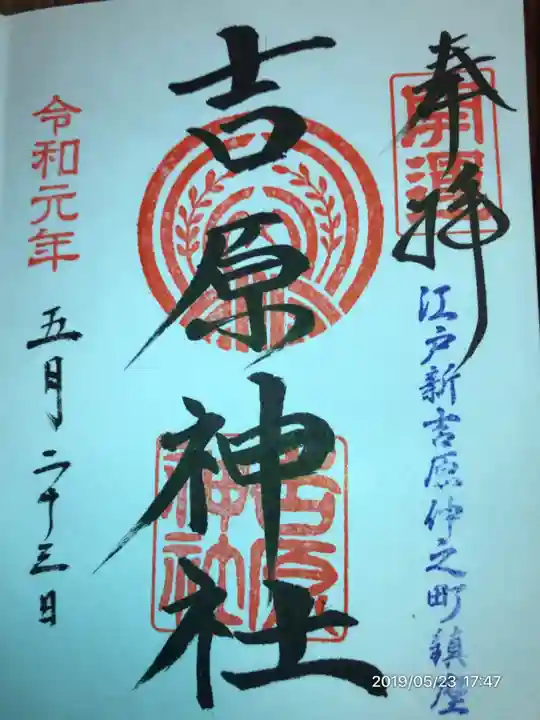 奉拝
開運
江戸新吉原仲之町鎮座
吉原神社
吉原
神社
令和元年
五月二十三日
2019/05/23 17:47